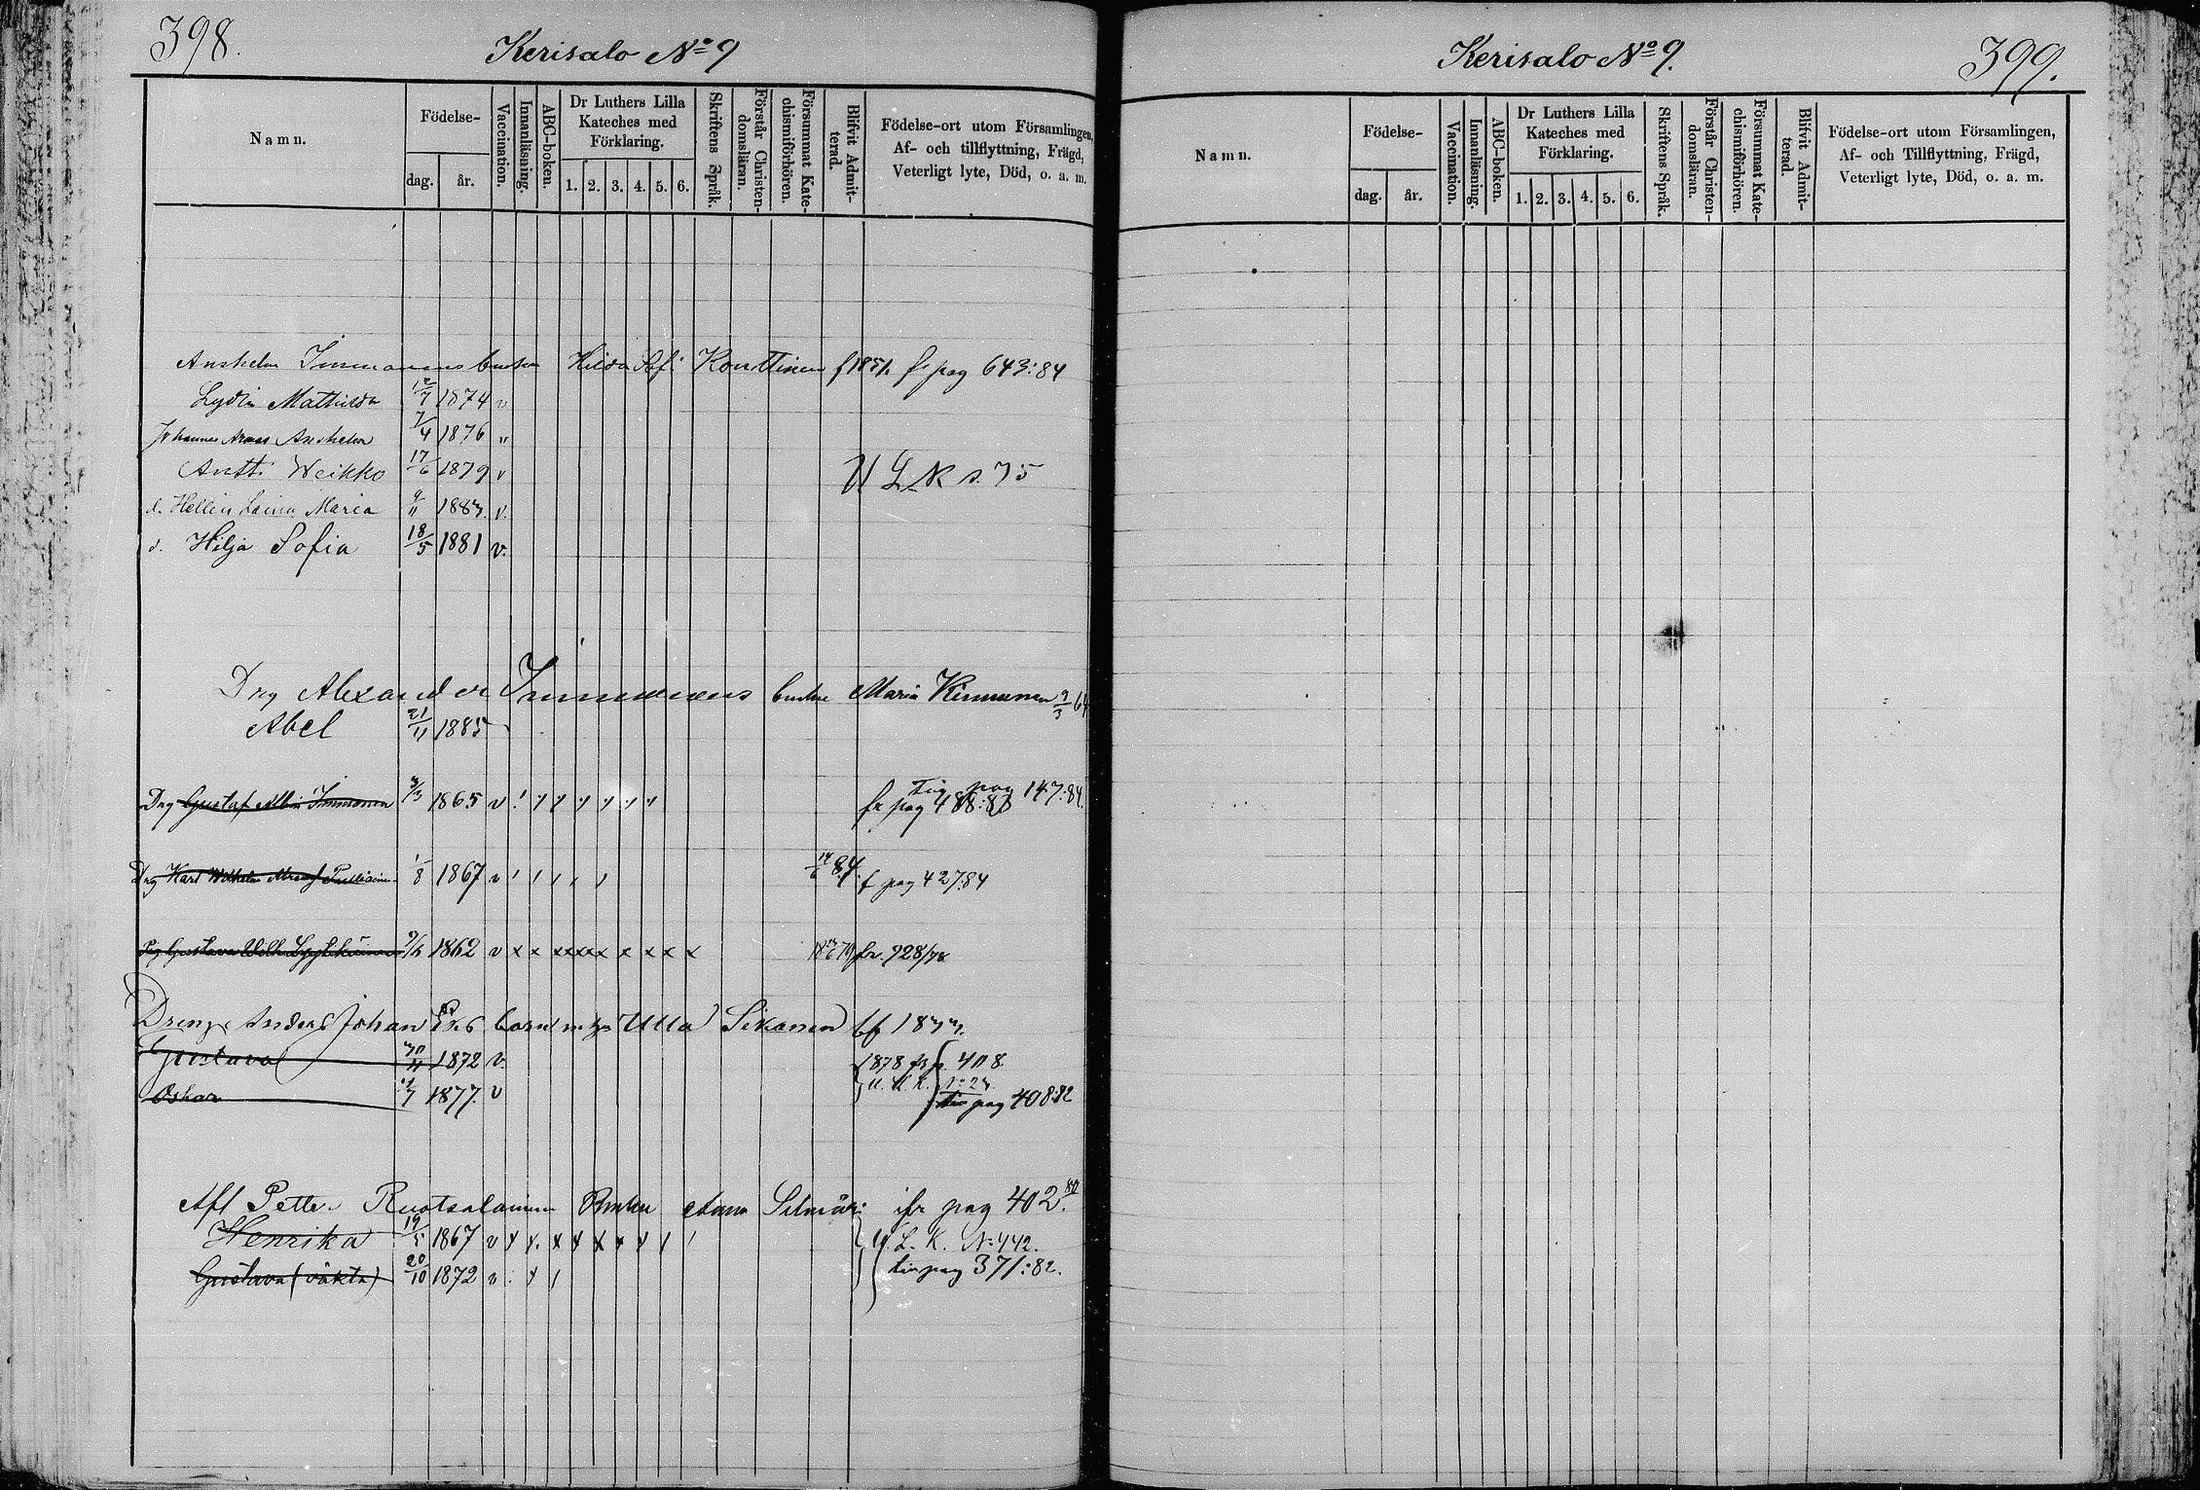 398.
Kerisalo No 9
Namn.
Födelse-
dag.
år.
Vaccination.
Innanläsning.
ABC-boken.
Dr Luthers Lilla
Kateches med
Förklaring.
1. 2. 3. 4. 5. 6.
Skriftens Språk.
Förstår Christen-
domsläran.
Försummat Kate-
chismiförhören.
Blifvit Admit-
terad.
Födelse-ort utom Församlingen,
Af- och tillflyttning, Frägd,
Veterligt lyte, Död, o. a. m.
Anshelm Immonens hustru Hilda Sofi Konttinen f 1851. fr pag 643:84
Lydia Mathilda 12/7 1874 v
Johannes Armas Anshelm 7/4 1876 "
Antti Weikko 17/6 1879 v U L K s. 75
d. Hellin Laina Maria 9/11 1883. v.
d. Hilja Sofia 18/5 1881 v.
Drg Alexander Immonens hustru Maria Kinnunen 9/3 64
Abel 21/11 1885
Drg Gustaf Albin Immonen 3/3 1865 v
tig pag 147:84.
fr pag 488:83
Drg Karl Wilhelm 1/8 1867 v 84. f pag 427:84
Gustava Wilh 1862 v x x xxxxx x x x x fr. 928/78
Dreng Anders Johan barn m hu Ulla Sikanen
Gustava 1872 v. 1878 fr p. 408
Oskar 1877. v
tig pag 408:82
Afl Petter Ruotsalainen Enka Anna ifr pag 402.80
Henrika 19/5 1867 v U. L. K. No 442.
Gustava (väkta) 20/10 1872 v tig pag 371:82.
Kerisalo No 9.
399.
Namn.
Födelse-
dag.
år.
Vaccination.
Innanläsning.
ABC-boken.
Dr Luthers Lilla
Kateches med
Förklaring.
1. 2. 3. 4. 5. 6.
Skriftens Språk.
Förstår Christen-
domsläran.
Försummat Kate-
chismiförhören.
Blifvit Admit-
terad.
Födelse-ort utom Församlingen,
Af- och Tillflyttning, Frägd,
Veterligt lyte, Död, o. a. m.